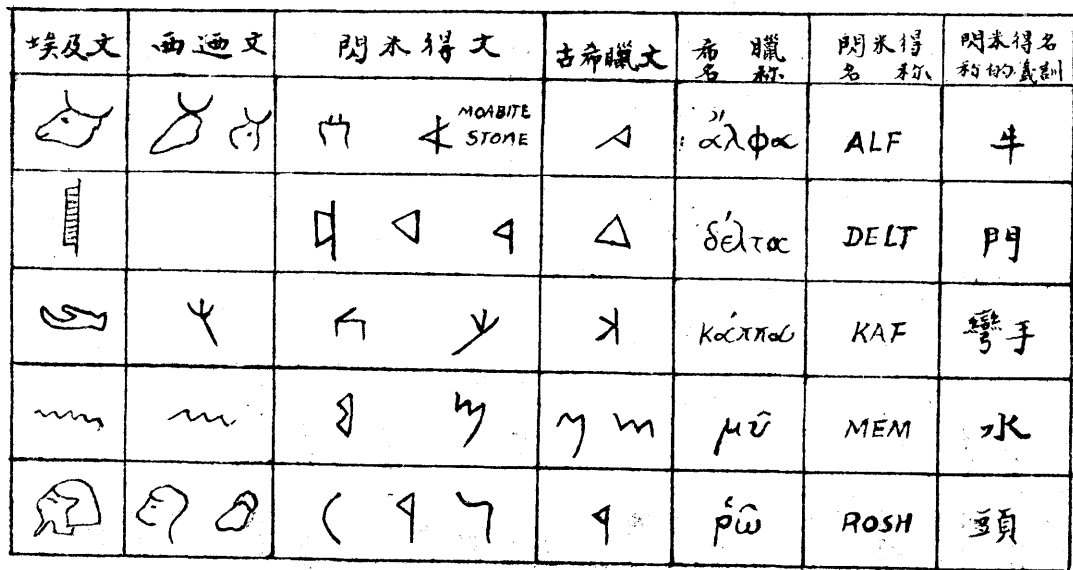 埃及文 西迺文 閃米得文 古希臘文 希臘名称 閃米得名称 閃米得名称的義訓
MOABITE STONE ἄλφα ALF 牛
δέλτα DELT 門
κάππα KAF 彎手
μῦ MEM 水
ῥῶ ROSH 頭